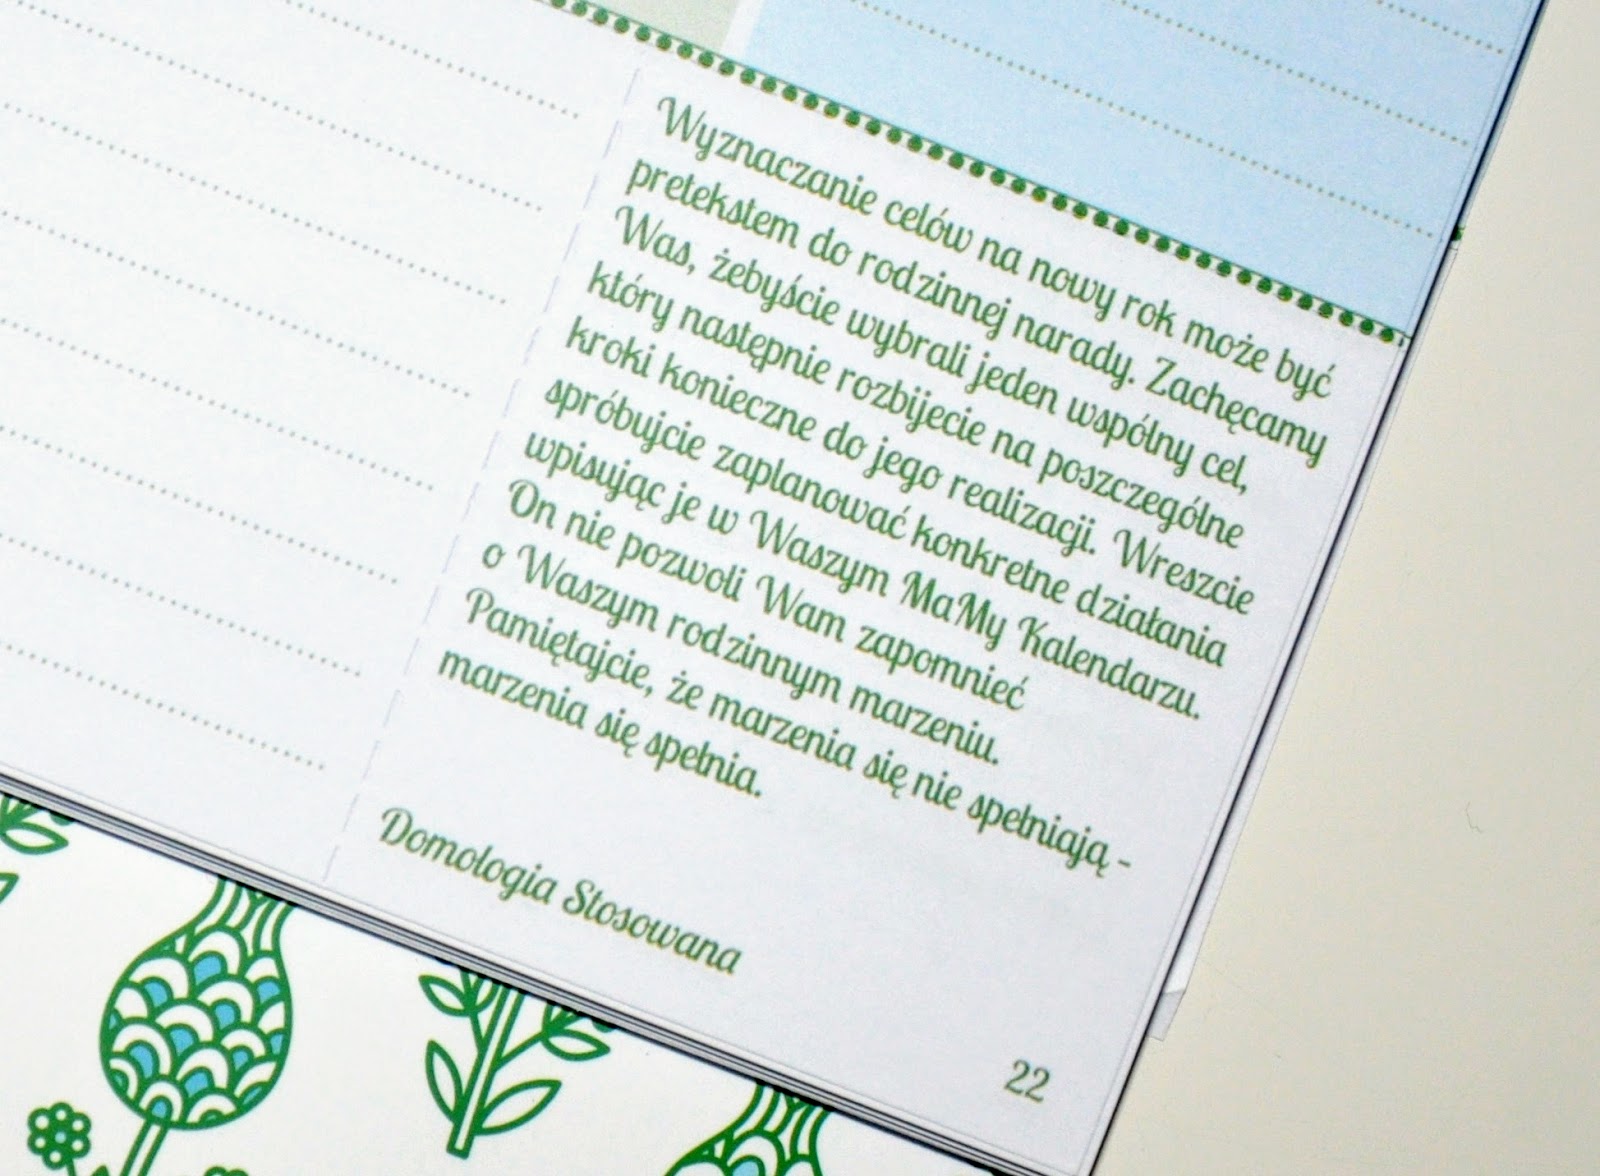 Wyznaczanie celów na nowy rok może być
pretekstem do rodzinnej narady. Zachęcamy
Was, żebyście wybrali jeden wspólny cel,
który następnie rozbijecie na poszczególne
kroki konieczne do jego realizacji. Wreszcie
spróbujcie zaplanować konkretne działania
wpisując je w Waszym MaMy Kalendarzu.
On nie pozwoli Wam zapomnieć
o Waszym rodzinnym marzeniu.
Pamiętajcie, że marzenia się nie spełniają -
marzenia się spełnia.
Domologia Stosowana
22